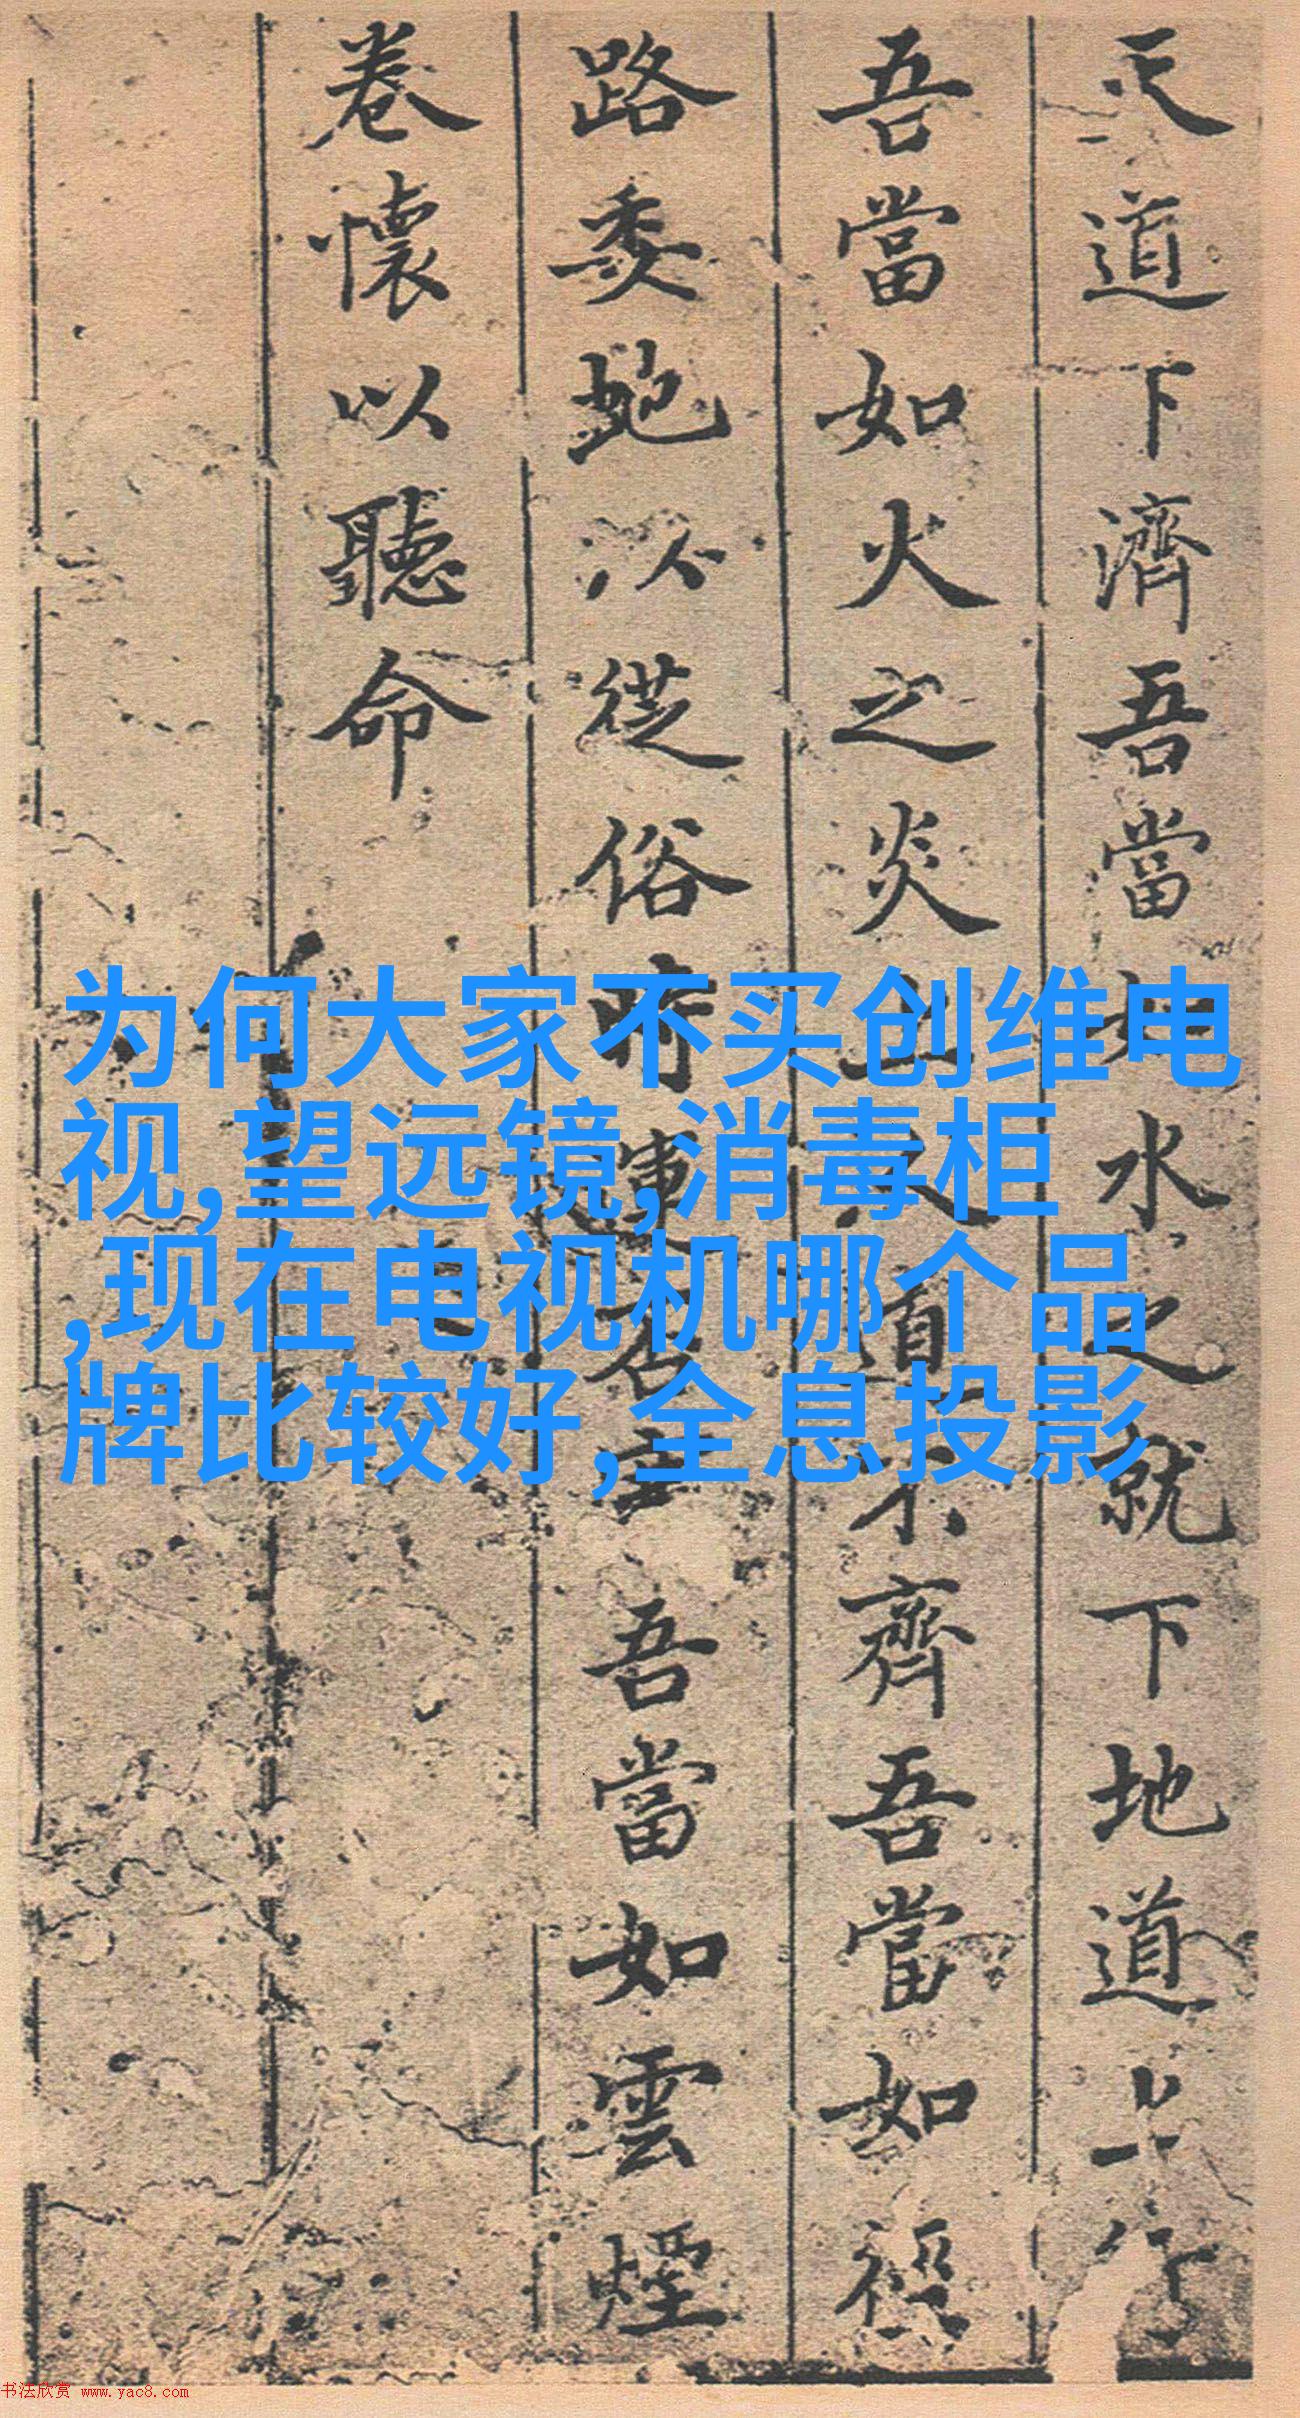 天道下濟吾當如水之就下地道上行
吾當如火之炎上人道不齊吾當如徑
路委虵以從俗時運否塞吾當如雲煙
卷懷以聽命
为何大家不买创维电
视,望远镜,消毒柜
,现在电视机哪个品
牌比较好,全息投影
书法欣赏 www.yac8.com